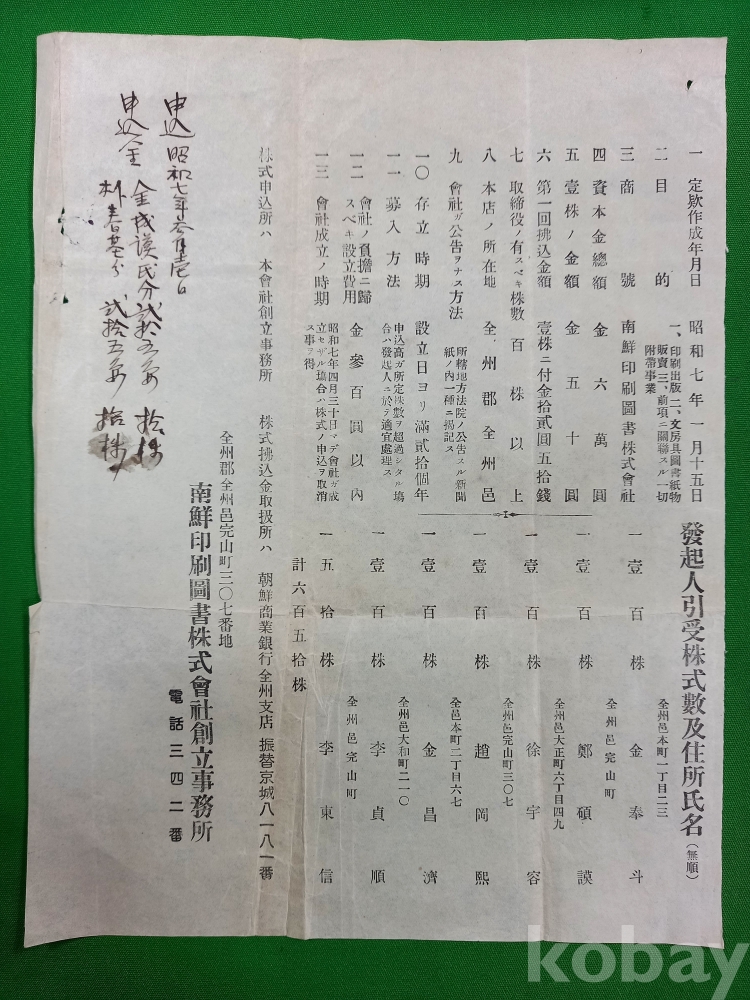 一 定欵作成年月日 昭和七年一月十五日
二 目的 一、印刷出版二、文房具圖書紙物
販賣三、前項ニ關聯スル一切
附帶事業
三 商號 南鮮印刷圖書株式會社
四 資本金總額 金六萬圓
五 壹株ノ金額 金五十圓
六 第一回拂込金額 壹株ニ付金拾貳圓五拾錢
七 取締役ノ有スベキ株數 百株以上
八 本店ノ所在地 全州郡全州邑
九 會社ガ公告ヲナス方法 所轄地方法院ノ公告スル新聞
紙ノ內一種ニ揭記ス
一〇 存立時期 設立日ヨリ滿貳拾個年
一一 募入方法 申込高ガ所定株數ヲ超過シタル塲
合ハ發起人ニ於テ適宜處理ス
一二 會社ノ負擔ニ歸
スベキ設立費用 金參百圓以內
一三 會社成立ノ時期 昭和七年四月三十日マデ會社ガ成
立セザル塲合ハ株式ノ申込ヲ取消
ス事ヲ得
發起人引受株式數及住所氏名(無順)
一壹百株 全州邑本町一丁目二三 金奉斗
一壹百株 全州邑完山町 鄭碩謨
一壹百株 全州邑大正町六丁目四九 徐宇容
一壹百株 全州邑完山町三〇七 趙岡熙
一壹百株 全邑本町二丁目六七 金昌濟
一壹百株 全州邑大和町二一〇 李貞順
一五拾株 全州邑完山町 李東信
計六百五拾株
株式申込所ハ 本會社創立事務所 株式拂込金取扱所ハ 朝鮮商業銀行全州支店 振替京城八一八一番
全州郡全州邑完山町三〇七番地
南鮮印刷圖書株式會社創立事務所
電話三四二番
申込 昭和七年參月 日
申込金 金成謨氏分 貳拾五 拾株
朴春基分 貳拾五 拾株
kobay